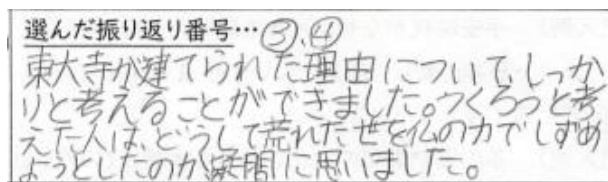 選んだ振り返り番号…③,④
東大寺が建てられた理由について、しっか
りと考えることができました。つくろうと考
えた人は、どうして荒れたぜを仏の力でしずめ
ようとしたのか疑問に思いました。